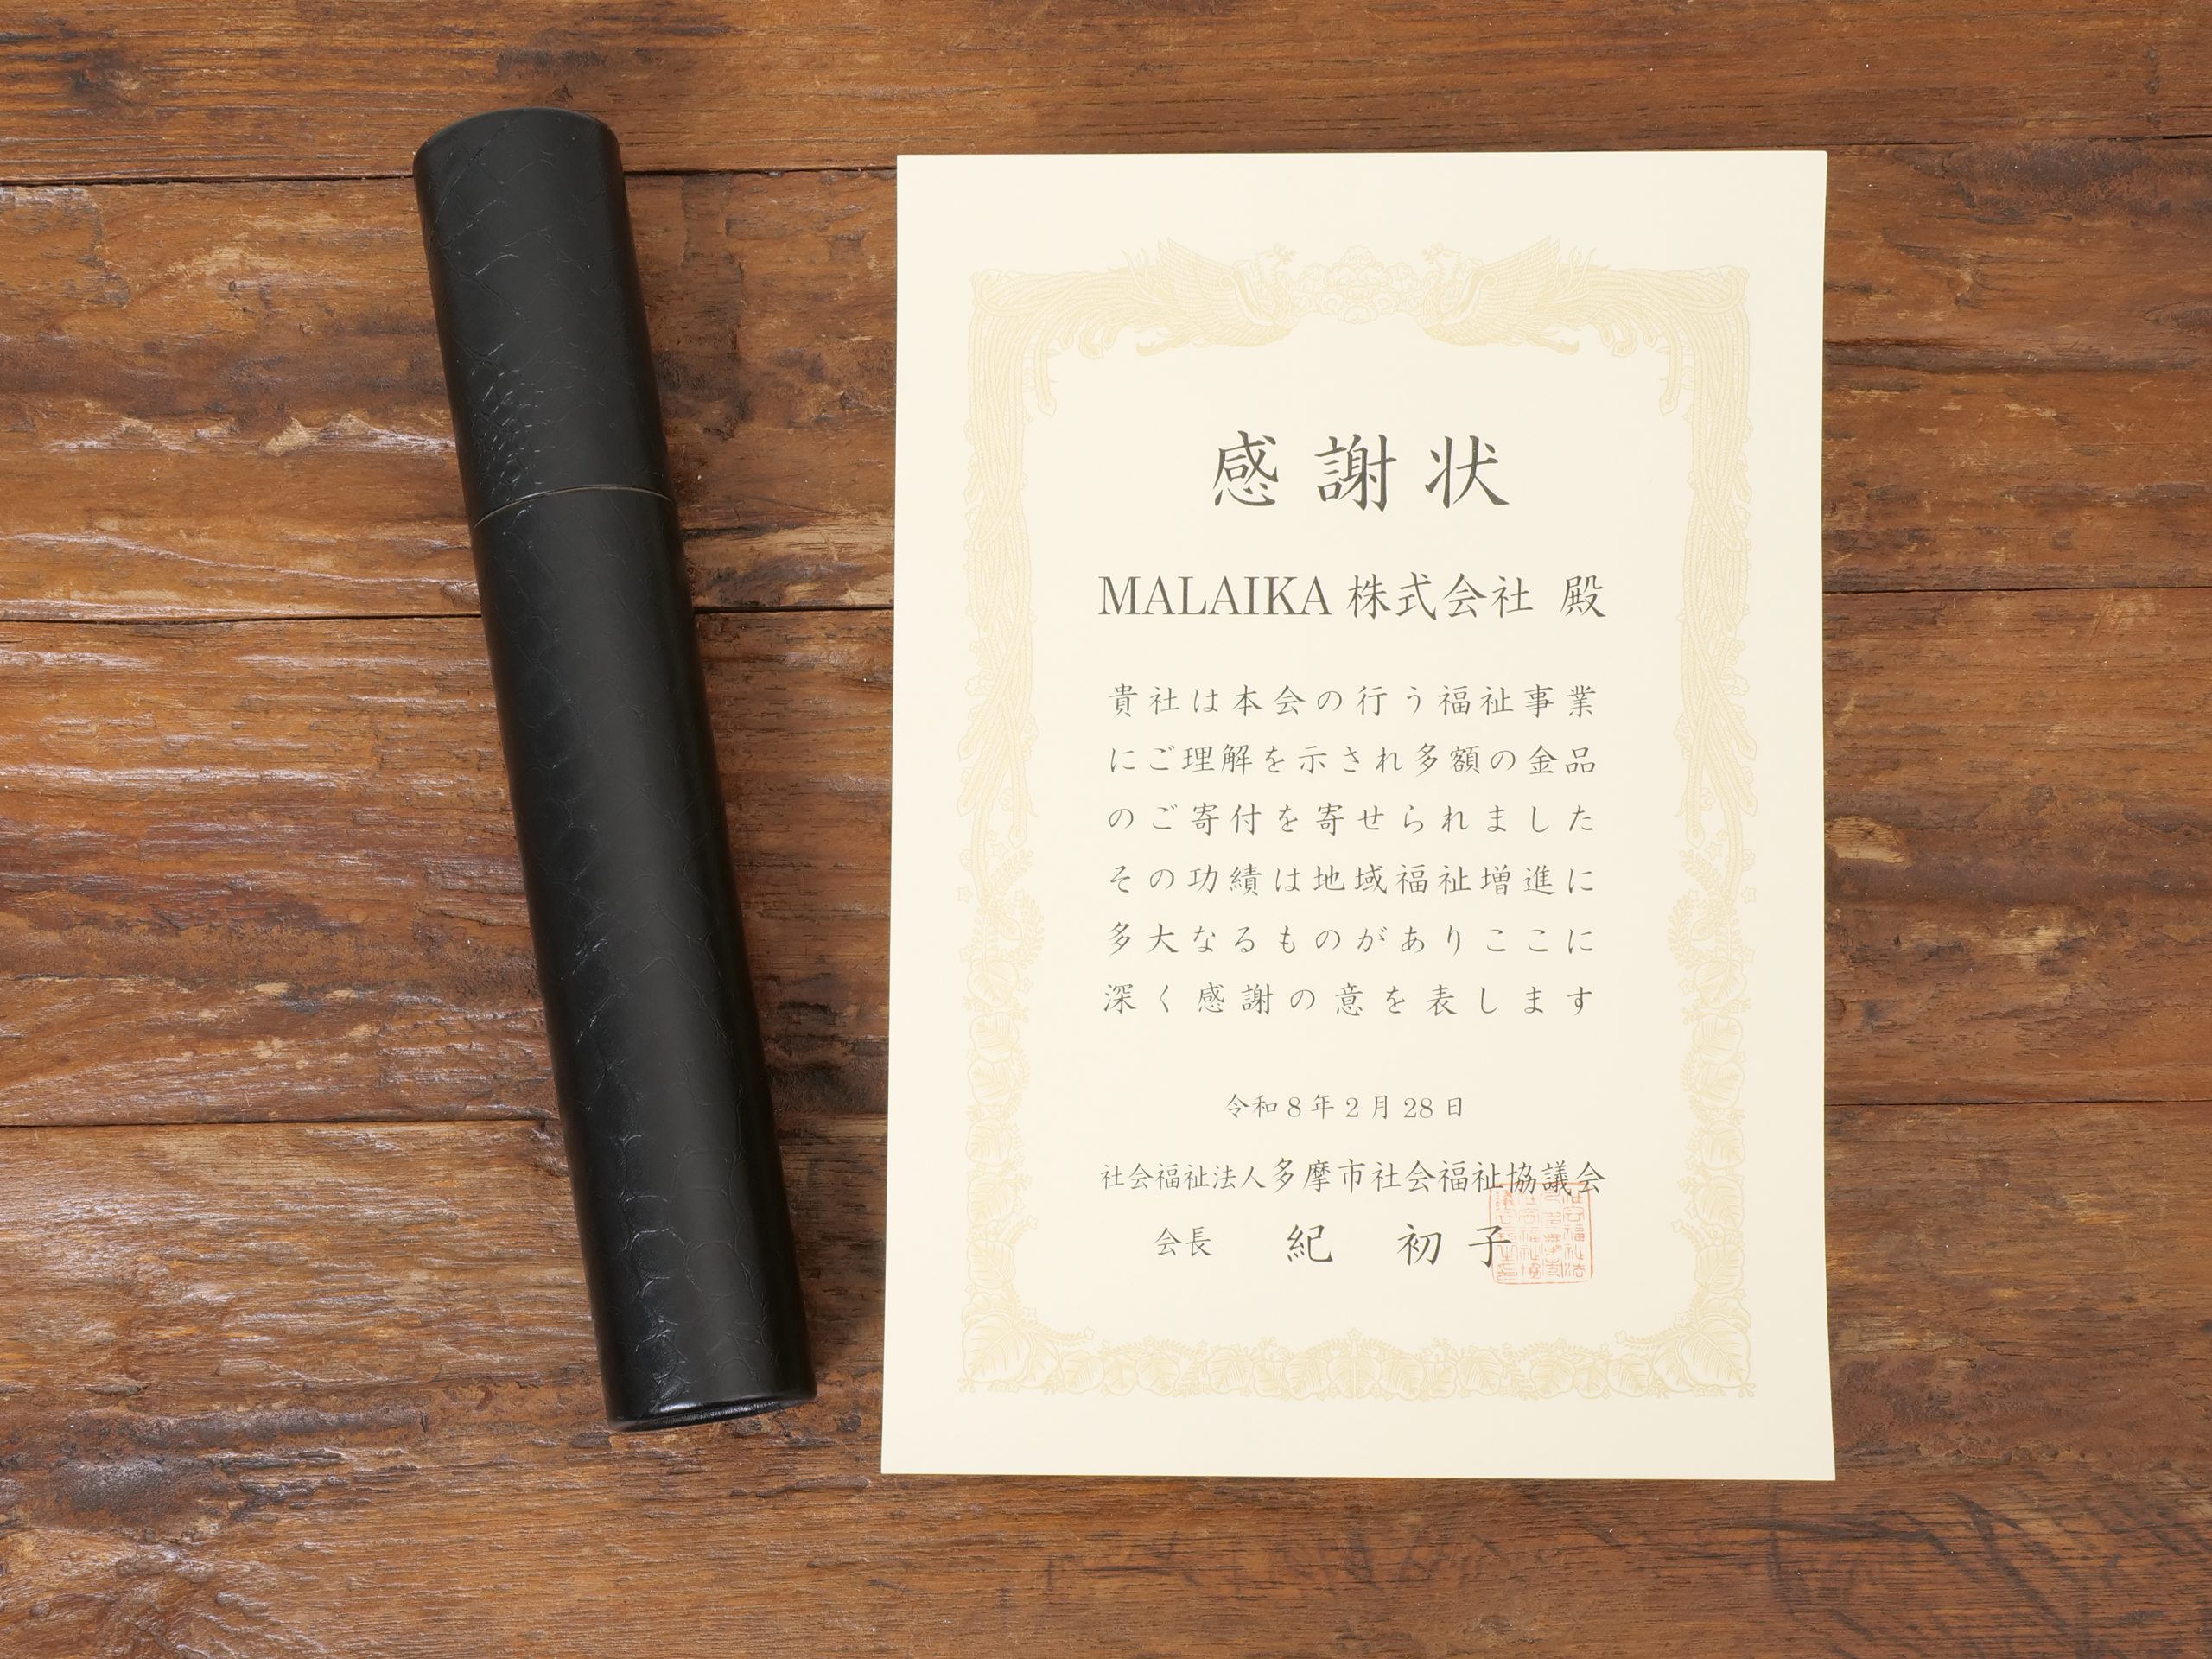 感謝状
MALAIKA 株式会社 殿
貴社は本会の行う福祉事業
にご理解を示され多額の金品
のご寄付を寄せられました
その功績は地域福祉増進に
多大なるものがありここに
深く感謝の意を表します
令和8年2月28日
社会福祉法人多摩市社会福祉協議会
会長 紀 初子